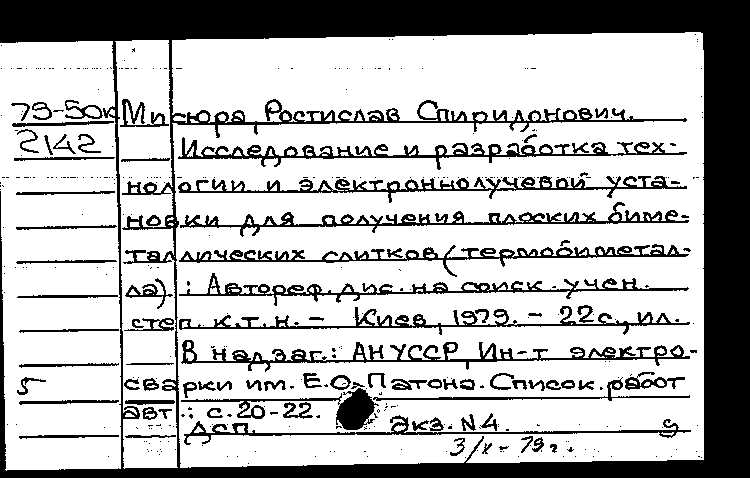 79-50к Мисюра, Ростислав Спиридонович.
2142 Исследование и разработка тех-
нологии и электроннолучевой уста-
новки для получения плоских биме-
таллических слитков (термобиметал-
ла). : Автореф. дис. на соиск. учен.
степ. к.т.н. – Киев, 1979. – 22с., ил.
В надзаг.: АН УССР, Ин-т электро-
5 сварки им. Е.О. Патона. Список работ
авт.: с.20-22.
Дсп. Экз. N4. 9
3/X – 79г.